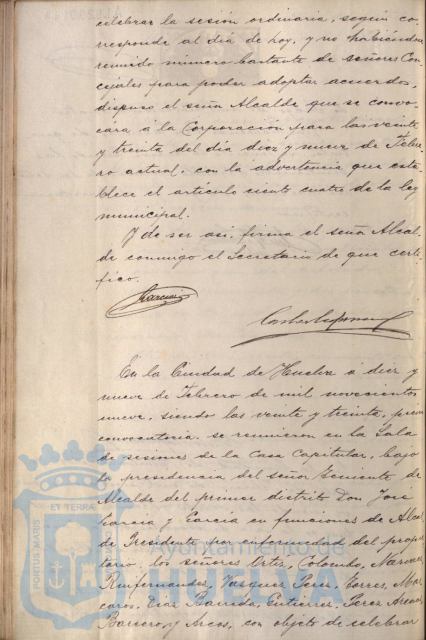 celebrar la sesión ordinaria, según co-
rresponde al día de hoy, y no habiéndose
reunido número bastante de señores Con-
cejales para poder adoptar acuerdos,
dispuso el señor Alcalde que se convo-
cara á la Corporación para las veinte
y treinta del día diez y nueve de Febre-
ro actual, con la advertencia que esta-
blece el artículo ciento cuatro de la ley
municipal.
Y de ser así, firma el señor Alcal-
de conmigo el Secretario de que certi-
fico.
García
En la Ciudad de Huelva á diez y
nueve de Febrero de mil novecientos
nueve, siendo las veinte y treinta, previa
convocatoria, se reunieron en la Sala
de sesiones de la Casa Capitular, bajo
la presidencia del señor Teniente de
Alcalde del primer distrito Don José
García y García en funciones de Alcal-
de Presidente por enfermedad del propie-
tario, los señores Ortiz, Colombo, Narváez
Vazquez Perez, Torres, Ma-
Diaz Barrida, Gutierrez, Perez
Barrero, y Arcos, con objeto de celebrar
Ayuntamiento de
HUELVA
PORTUS MARIS ET TERRAE